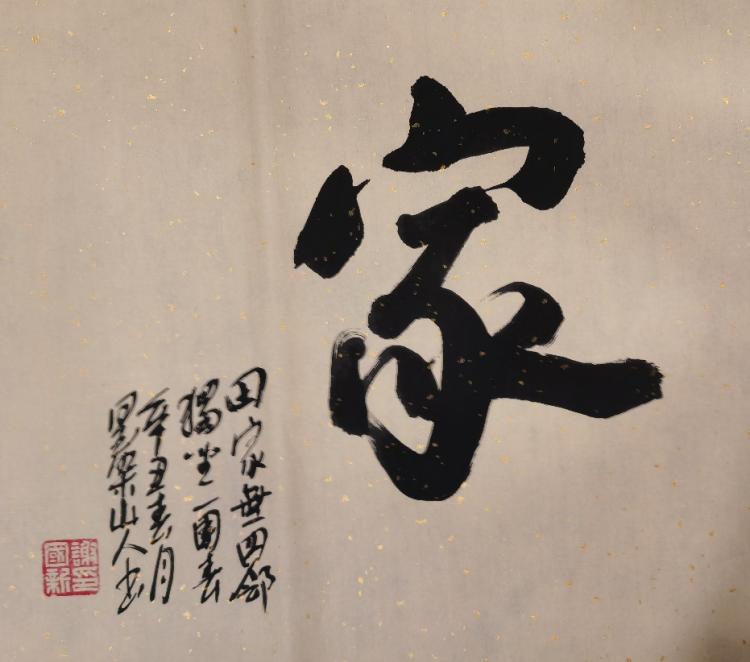 家
田家無四鄰
獨坐一園春
辛丑春月
梁山人书
謝印
國新